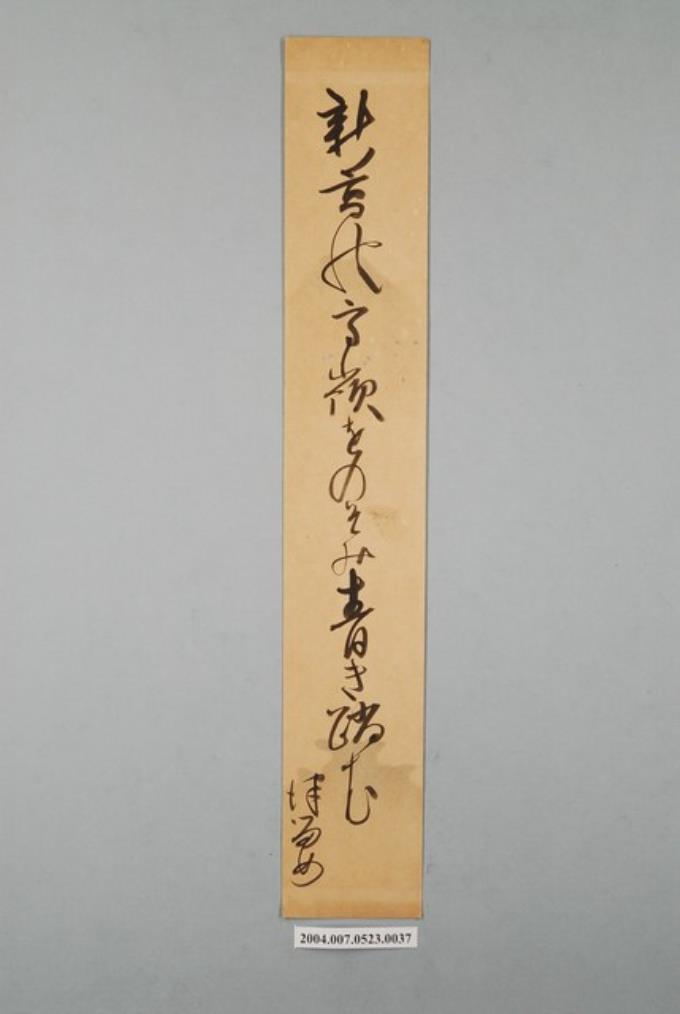 新高の高嶺をのそみ青き踏む
2004.007.0523.0037